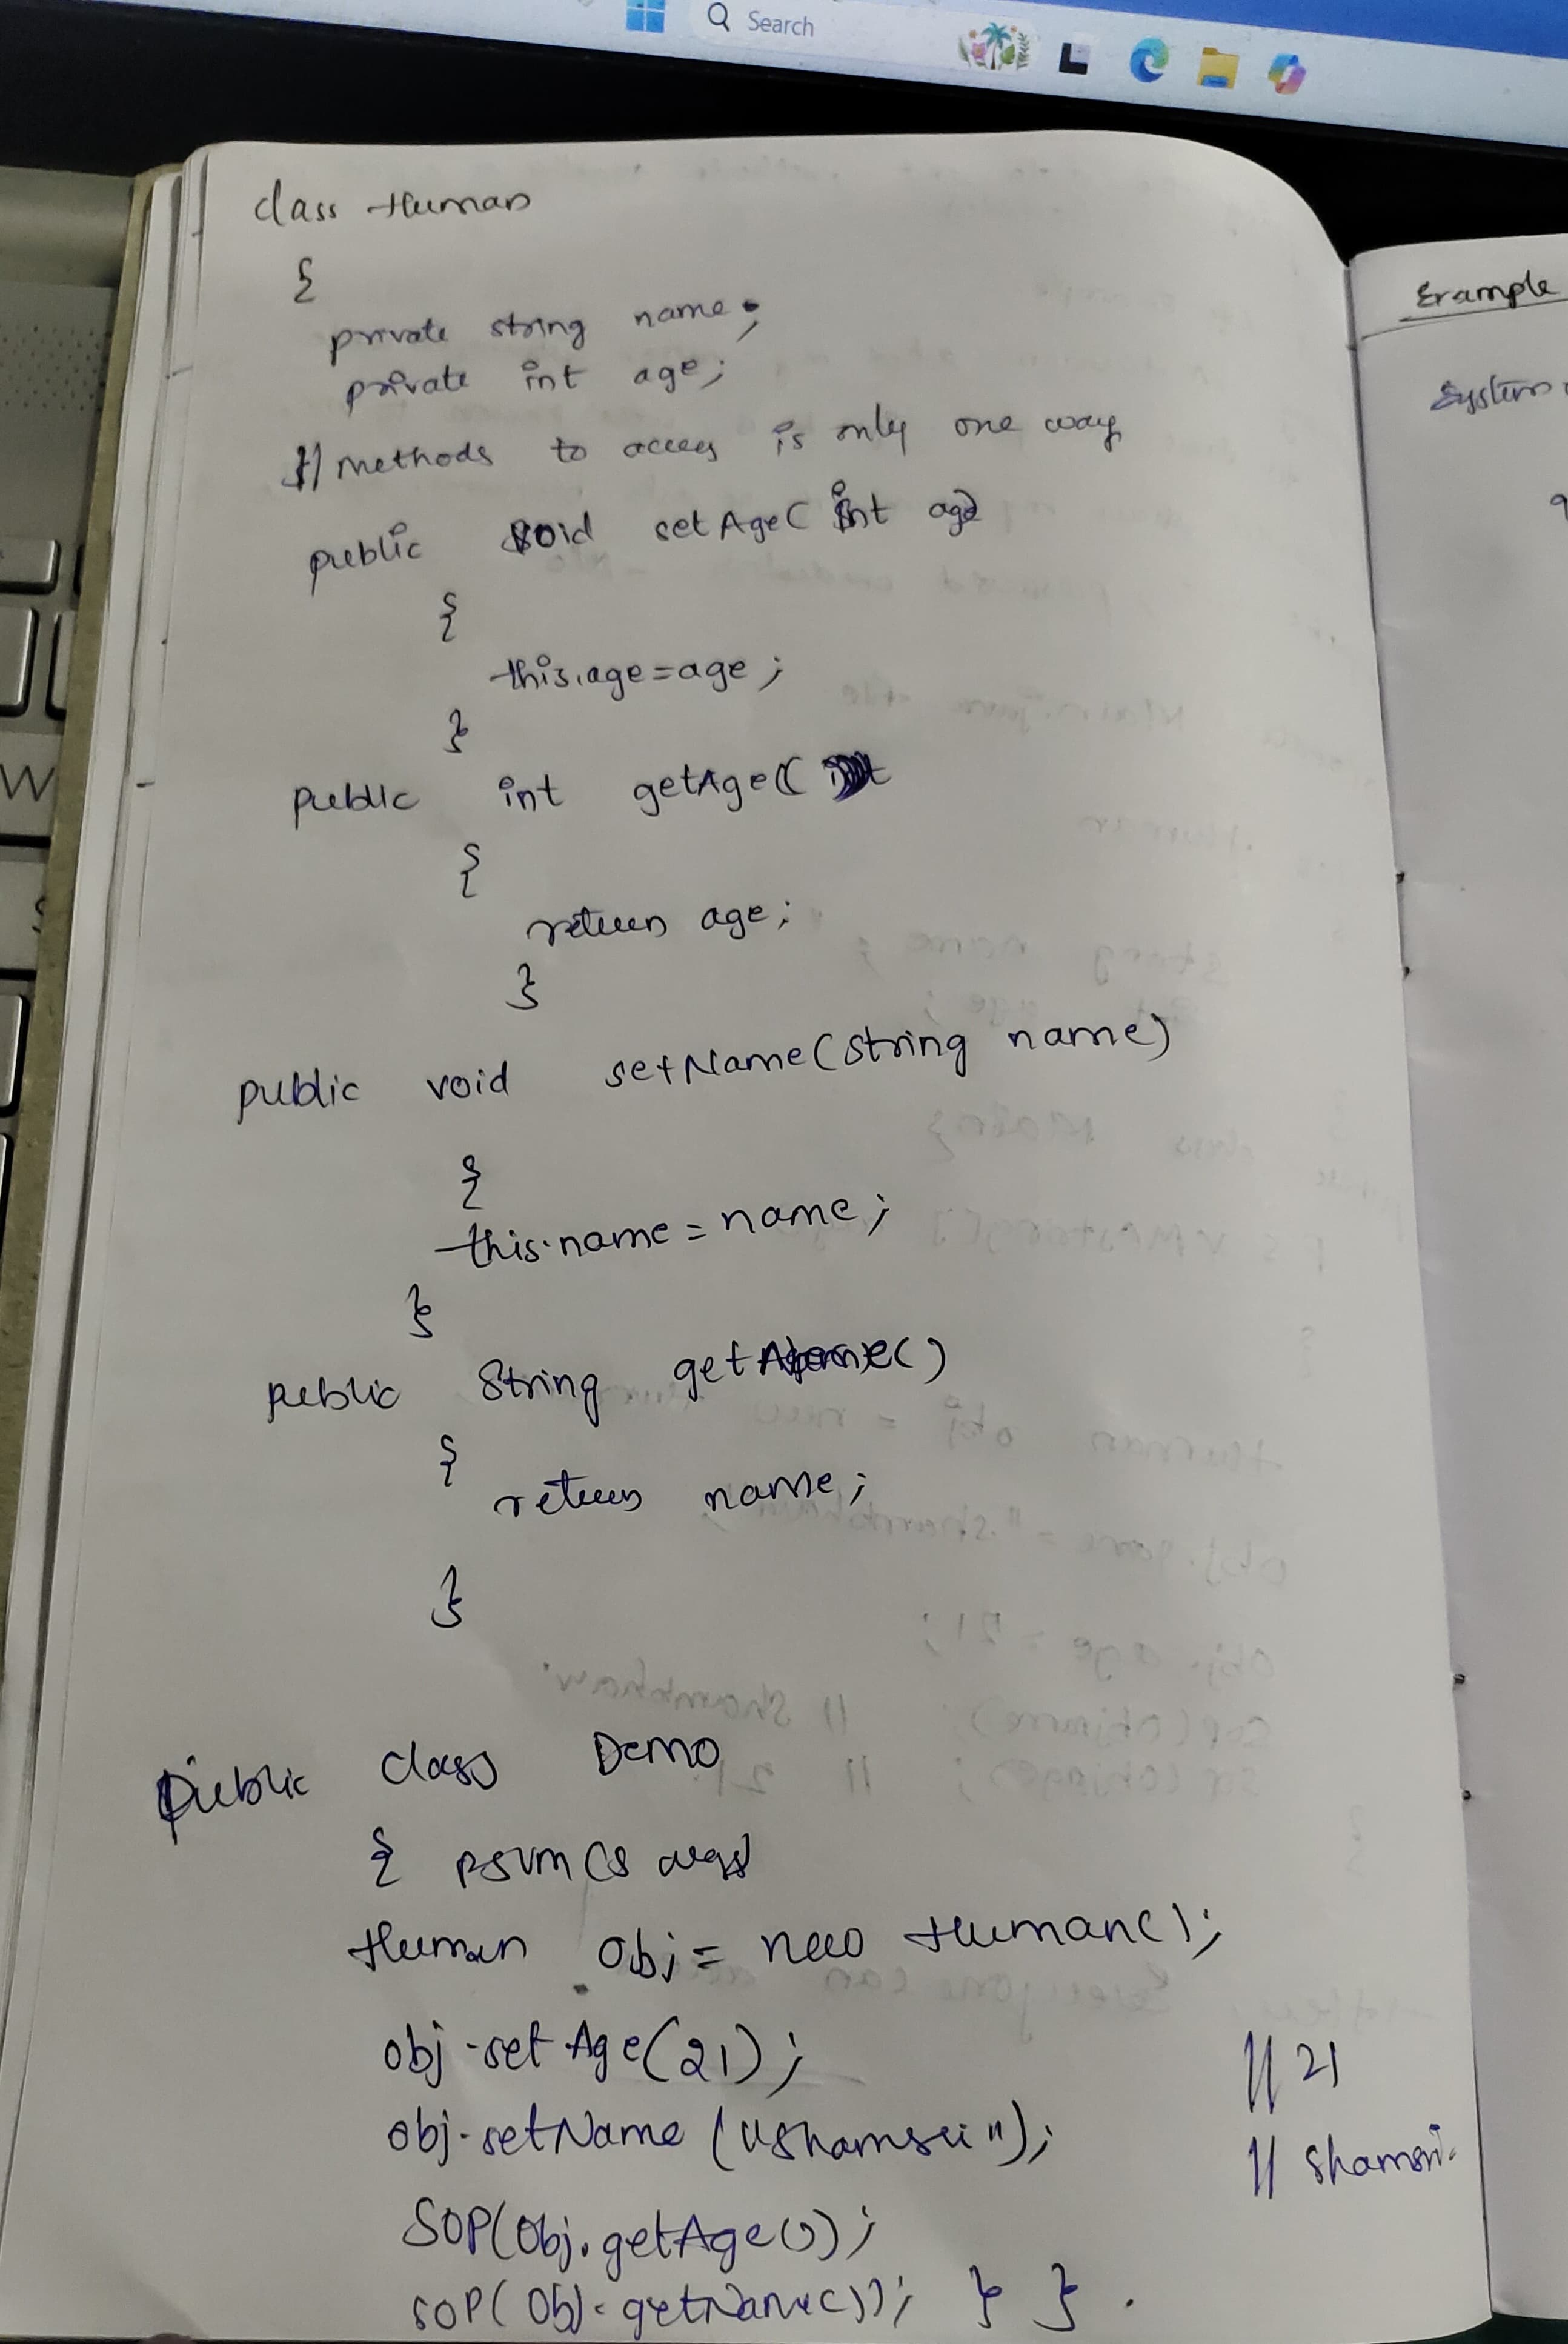 Search
class Human
{
private string name;
private int age;
// methods to access is only one way
public void setAge( int age)
{
this.age=age;
}
public int getAge((
{
return age;
}
public void setName(string name)
{
this.name = name;
}
public string getName()
{
return name;
}
public class Demo
{ psvm(s args)
Human obj = new Human();
obj.setAge(21); // 21
obj.setName("shamsri"); // shamsri.
SOP(obj.getAge());
SOP(obj.getName()); } }.
Example
System
W